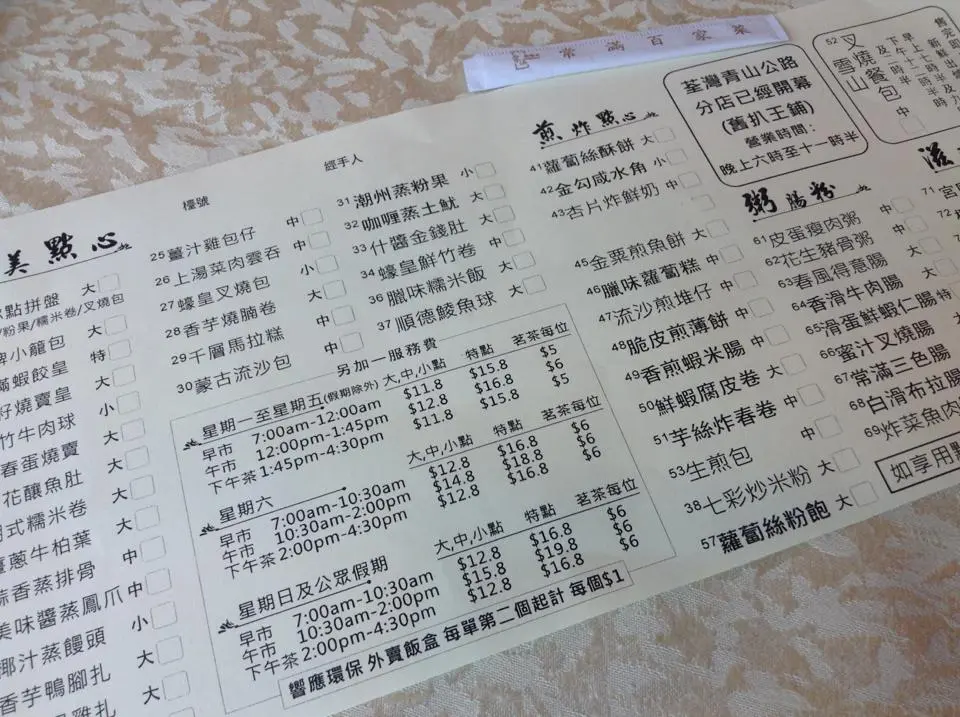 常滿百家菜
荃灣青山公路
分店已經開幕
(舊扒王鋪)
營業時間:
晚上六時至十一時半
52
雪山
叉燒餐包 中
早上十一時半
下午一時半
檯號
經手人
美點心
點拼盤 大
粉果/糯米卷/叉燒包
小籠包 大
蝦餃皇 特
燒賣皇 大
竹牛肉球 小
春蛋燒賣 大
花釀魚肚 大
式糯米卷 大
蔥牛柏葉 大
香蒸排骨 中
美味醬蒸鳳爪 中
椰汁蒸饅頭 小
香芋鴨腳扎 大
雞扎 大
25 薑汁雞包仔 中
26 上湯菜肉雲吞 中
27 蠔皇叉燒包 小
28 香芋燒腩卷 大
29 千層馬拉糕 中
30 蒙古流沙包 中
31 潮州蒸粉果 小
32 咖喱蒸土魷 大
33 什醬金錢肚 大
34 蠔皇鮮竹卷 中
36 臘味糯米飯 大
37 順德鯪魚球 大
另加一服務費
星期一至星期五(假期除外) 大,中,小點 特點 茗茶每位
早市 7:00am-12:00am $11.8 $15.8 $5
午市 12:00pm-1:45pm $12.8 $16.8 $6
下午茶 1:45pm-4:30pm $11.8 $15.8 $5
星期六 大,中,小點 特點 茗茶每位
早市 7:00am-10:30am $12.8 $16.8 $6
午市 10:30am-2:00pm $14.8 $18.8 $6
下午茶 2:00pm-4:30pm $12.8 $16.8 $6
星期日及公眾假期 大,中,小點 特點 茗茶每位
早市 7:00am-10:30am $12.8 $16.8 $6
午市 10:30am-2:00pm $15.8 $19.8 $6
下午茶 2:00pm-4:30pm $12.8 $16.8 $6
響應環保 外賣飯盒 每單第二個起計 每個$1
煎炸點心
41 蘿蔔絲酥餅 大
42 金勾咸水角 小
43 杏片炸鮮奶 中
45 金粟煎魚餅 大
46 臘味蘿蔔糕 中
47 流沙煎堆仔 中
48 脆皮煎薄餅 中
49 香煎蝦米腸 中
50 鮮蝦腐皮卷 大
51 芋絲炸春卷 中
53 生煎包 中
38 七彩炒米粉 大
57 蘿蔔絲粉飽 大
粥腸粉
61 皮蛋瘦肉粥 中
62 花生豬骨粥 中
63 春風得意腸 大
64 香滑牛肉腸 大
65 滑蛋鮮蝦仁腸 特
66 蜜汁叉燒腸 大
67 常滿三色腸
68 白滑布拉腸
69 炸菜魚肉
如享用點
滋
71 宮
72
73